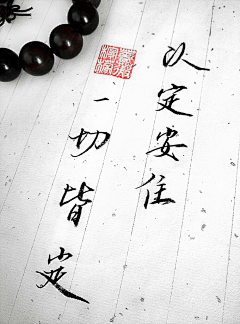 以定安住
一切皆